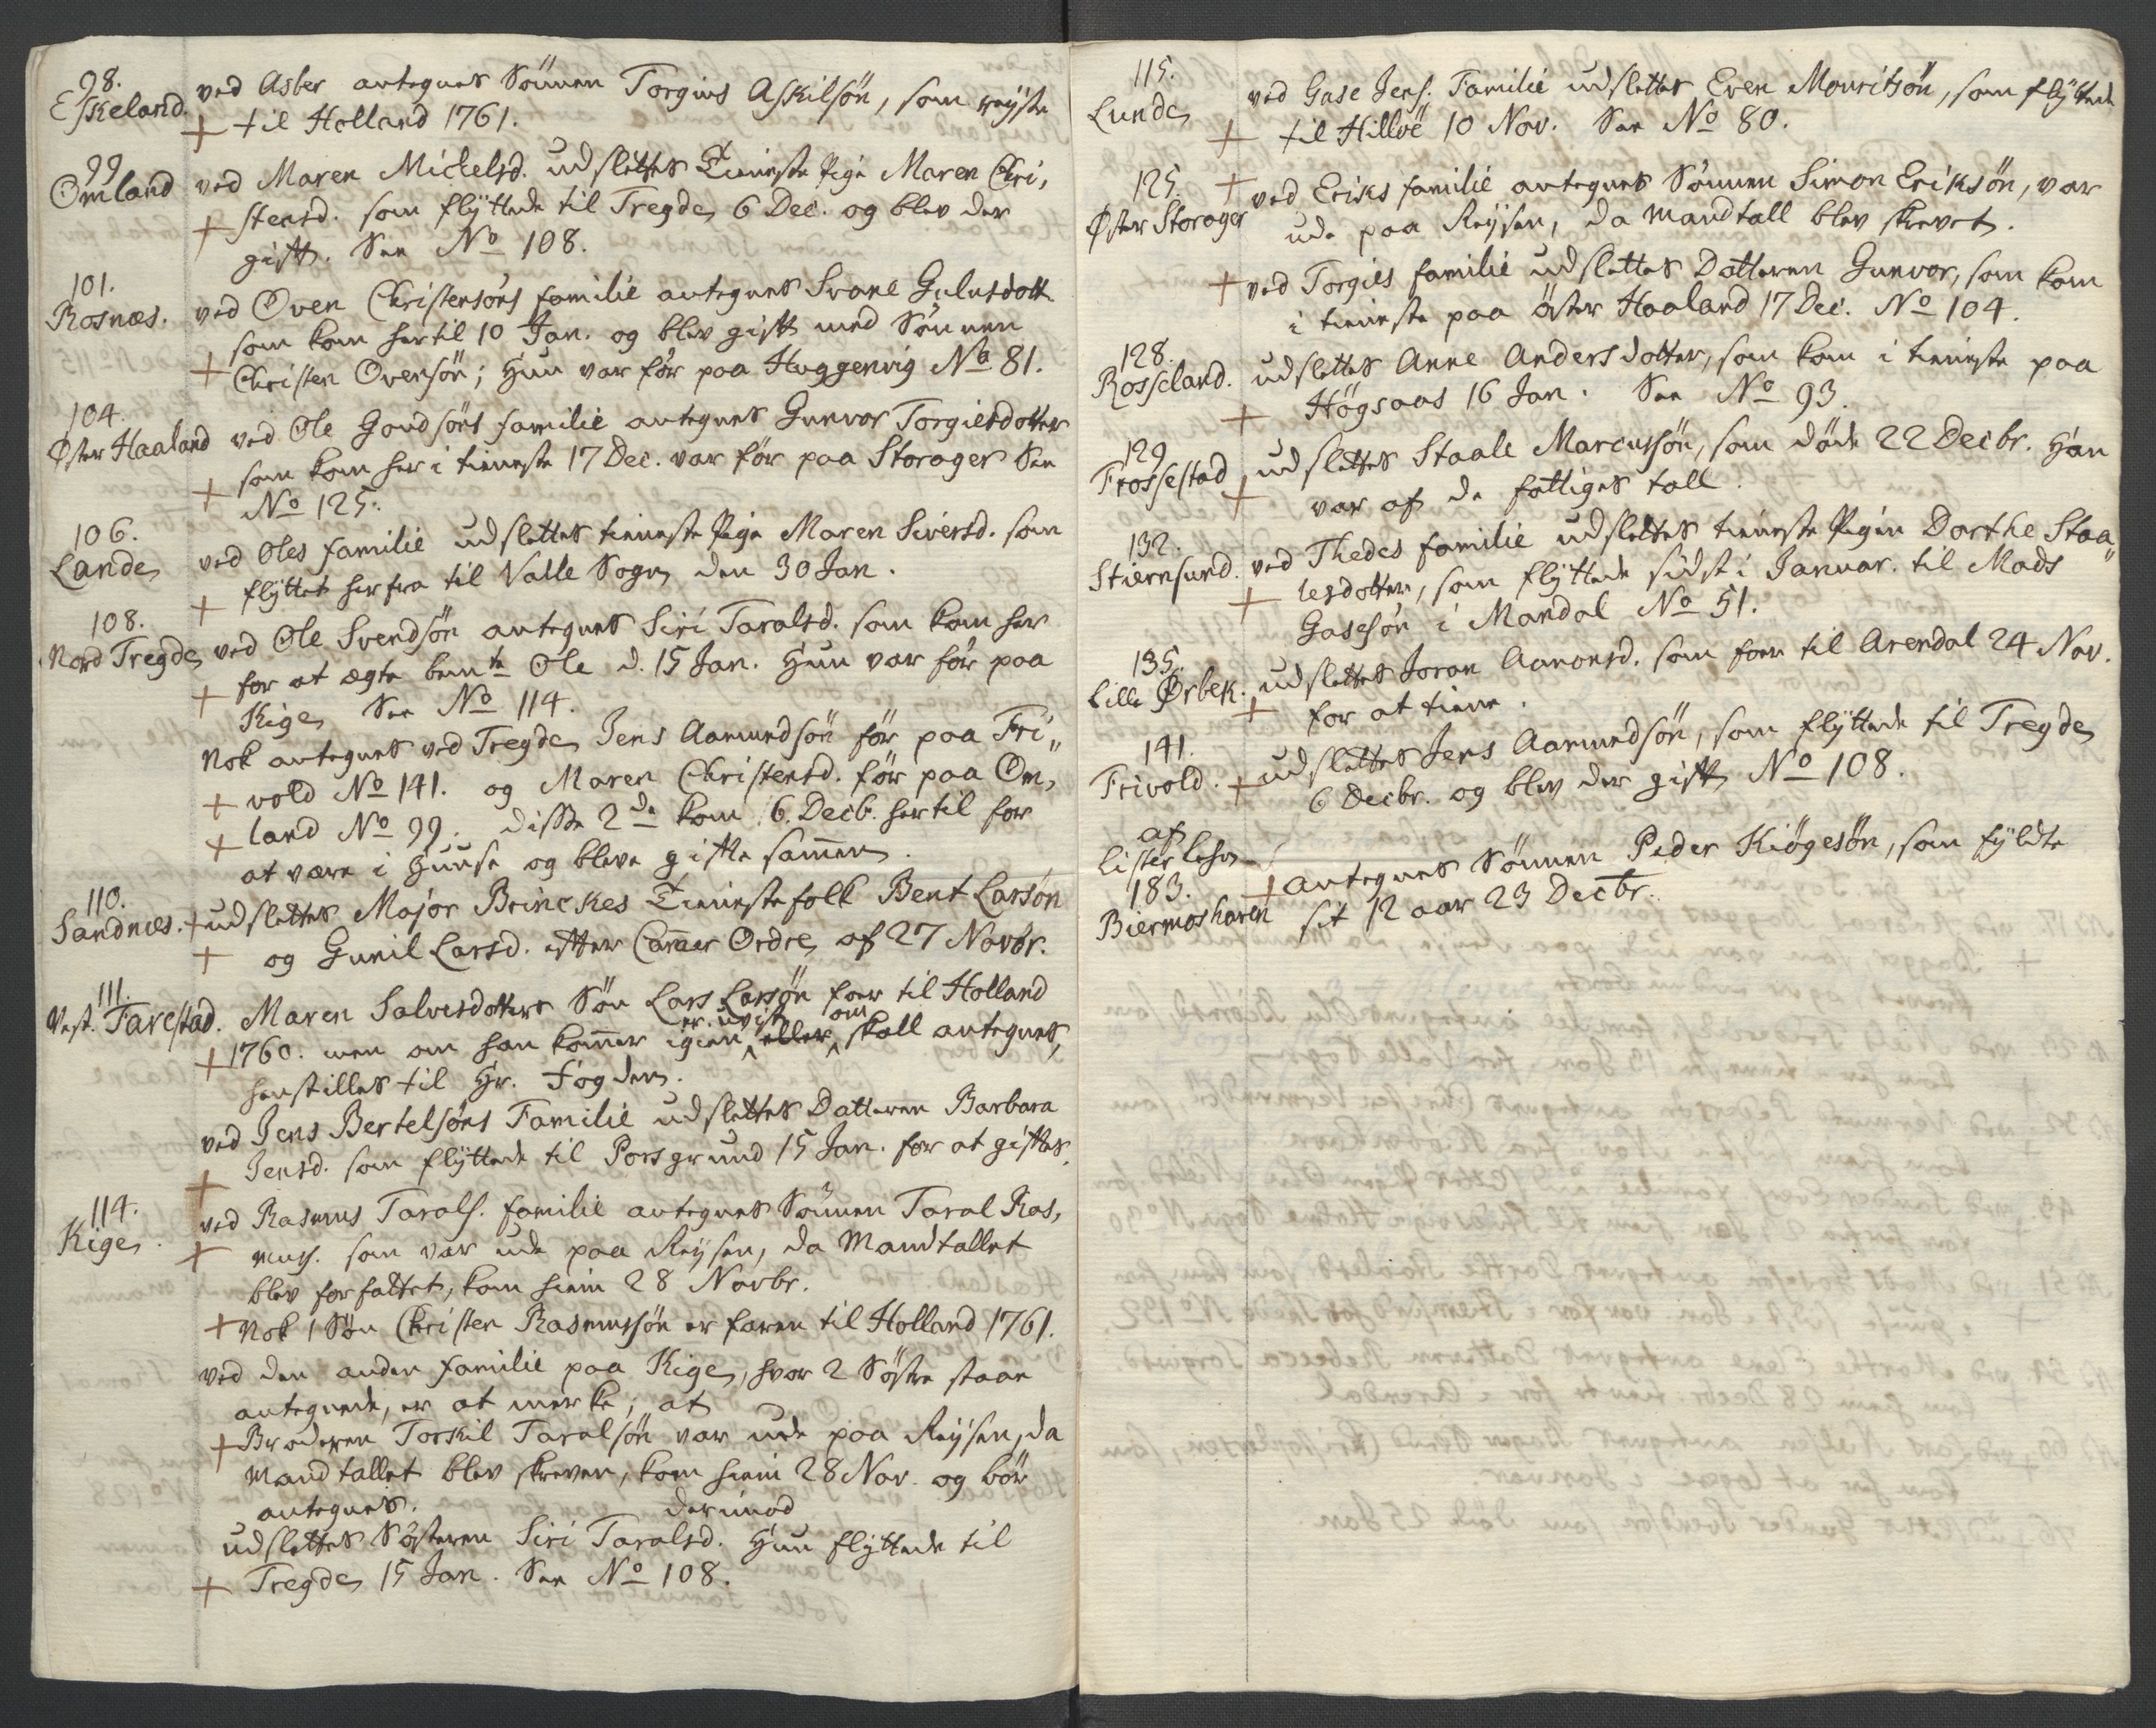 98.
Eskeland.
ved Asber antegnes Sönnen Torgius Askilsön, som reyste
+ til Holland 1761.
99
Omland
ved Maren Michelsd. udslettes Tieneste Pige Maren Chri,
+ stensd. som flÿttede til Tregde 6 Dec. og blev der
gift. See No 108.
101.
Rosnæs.
ved Oven Christensöns familie antegnes Svane Gulusdott.
som kom hertil 10 Jan. og blev gift med Sönnen
+ Christen Ovensön; Hun var för paa Huggenvig No 81.
104.
Øster Haaland
ved Ole Goudsöns familie antegnes Gunvor Torgiesdotter
+ som kom her i tieneste 17 Dec. var för paa Storager See
No 125.
106.
Lande
ved Oles familie udslettes tieneste Pige Maren Siversd. som
+ flÿttet herfra til Valle Sogn den 30 Jan.
108.
Nord Tregde
ved Ole Svendsön antegnes Siri Taralsd. som kom her
+ for at ægte bemte Ole d. 15 Jan. Hun var för paa
Kige See No 114.
Nok antegnes ved Tregde Jens Aamundsön för paa Fri„
+ vold No 141. og Maren Christensd. för paa Om,
+ land No 99. disse 2de kom 6. Decb. hertil for
at være i Huuse og bleve gifte sam̅en.
110.
Sandnæs.
+ udslettes Major Brinckes Tienestefolk Bent Larsön
+ og Gunil Larsd. efter Cam̅er Ordre af 27 Novbr.
111.
Vest. Farestad.
Maren Salvesdotters Sön Lars Larsön foer til Holland
er uvist om
+ 1760. men om han kom̅er igien, eller skall antegnes,
henstilles til Hr. Fogden.
ved Jens Bertelsöns Familie udslettes Datteren Barbara
+ Jensd. som flÿttede til Porsgrund 15 Jan. for at giftes.
114.
Kige.
ved Rasmus Tarals. familie antegnes Sönnen Taral Ras,
+ mus. som var ude paa Reÿsen, da Mandtallet
blev forfattet, kom hiem 28 Novbr.
+ Nok 1 Sön Christen Rasmussön er faren til Holland 1761.
ved den anden familie paa Kige, hvor 2 Söstre staar
antegnede, er at merke, at
+ Broderen Torkil Taralsön var ude paa Reÿsen, da
Mandtallet blev skreven, kom hiem 28 Nov. og bör
antegnes. derimod
udslettes Sösteren Siri Taralsd. Hun flÿttede til
+ Tregde 15 Jan. See No 108.
115.
Lunde
ved Gase Jens. Familie udslettes Even Mouritsön, som flÿttede
+ til Hillöe 10 Nov. See No 80.
125.
Øster Storager
+ ved Eriks familie antegnes Sönnen Simon Eriksön, var
ude paa Reÿsen, da Mandtall blev skrevet.
+ ved Torgies familie udslettes Datteren Gunvor, som kom
i tieneste paa Öster Haaland 17 Dec. No 104.
128.
Rosseland.
udslettes Anne Andersdotter, som kom i tieneste paa
+ Högsaas 16 Jan. See No 93.
129
Frossestad
udslettes Staale Marcussön, som döde 22 Decbr. Han
+ var af de fattiges tall.
132.
Stiernsund.
ved Thedes familie udslettes tieneste Pigen Dorthe Staa„
+ lesdotter, som flÿttede sidst i Januar. til Mads
Gasesön i Mandal No 51.
135.
Lille Ørbek.
udslettes Joran Aanonsd. som foer til Arendal 24 Nov.
+ for at tiene.
141.
Frivold.
+ udslettes Jens Aamundsön, som flÿttede til Tregde
6 Decbr. og blev der gift, No 108.
af
Lister Lehn
183.
Biermoshaven
+ antegnes Sönnen Peder Kiögesön, som fÿldte
sit 12 aar 23 Decbr.